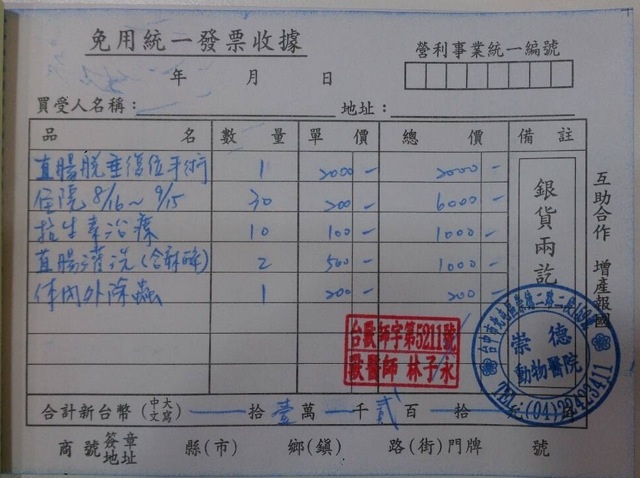 免用統一發票收據
營利事業統一編號
年 月 日
買受人名稱： 地址：
品 名 數 量 單 價 總 價 備 註
直腸脫垂復位手術 1 2000 - 2000 -
住院 8/16~9/15 30 200 - 6000 -
抗生素治療 10 100 - 1000 -
直腸清洗(含麻醉) 2 500 - 1000 -
体內外除蟲 1 200 - 200 -
銀貨兩訖
互助合作 增產報國
台獸師字第5211號
獸醫師 林予永
崇德
動物醫院
TEL:(04)22423411
合計新台幣(中文大寫) 拾壹萬 千貳百 拾
商號簽章地址 縣(市) 鄉(鎮) 路(街)門牌 號